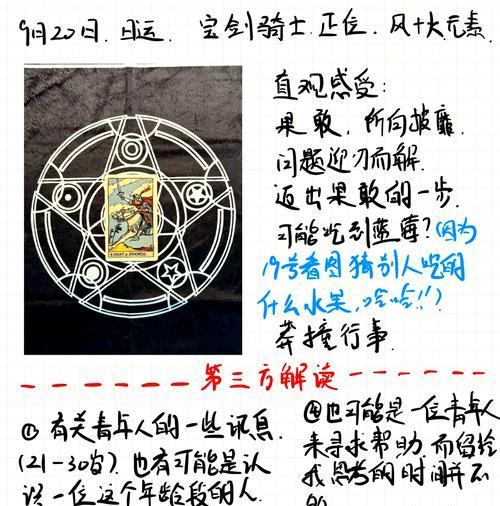 9月20日.日运. 宝剑骑士.正位.风+火元素.
KNIGHT of SWORDS
直观感受:
果敢, 所向披靡.
问题迎刃而解.
迈出果敢的一步.
可能吃到蓝莓?(因为
19号看图猜别人吃的
什么水果,哈哈!!)
莽撞行事.
第三方解读
① 有关青年人的一些讯息.
(21-30岁).也有可能是认
识一位这个年龄段的人.
④也可能是一位青年人
来寻求帮助,而留给
我思考的时间并不